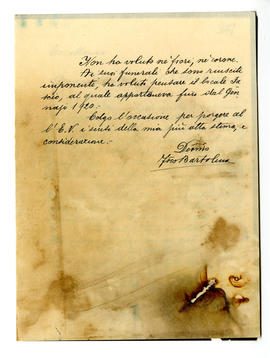 Non ha voluto nè fiori, nè corone.
Ai suoi funerali che sono riusciti
imponenti, ha voluto pensare il locale
al quale apparteneva fino dal Gen-
najo 1920.-
Colgo l'occasione per porgere al
l'E.V. i sensi della mia più alta stima, e
considerazione.-
Dev.mo
Bartolini